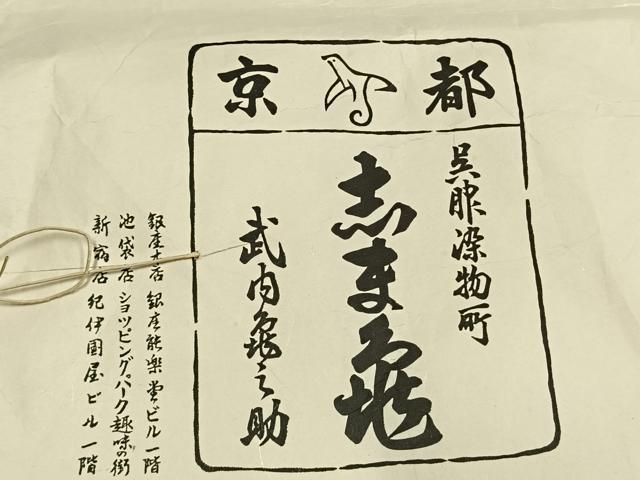 京都
呉服染物所
志ま亀
武内亀之助
銀座本店 銀座能樂堂ビル一階
池袋店 ショツピングパーク趣味の街
新宿店 紀伊國屋ビル一階